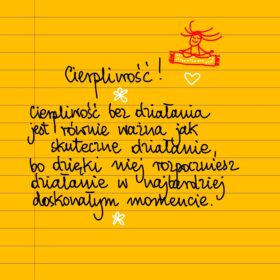 Cierpliwość!
Cierpliwość bez działania
jest równie ważna jak
skuteczne działanie,
bo dzięki niej rozpoczniesz
działanie w najbardziej
doskonałym momencie.